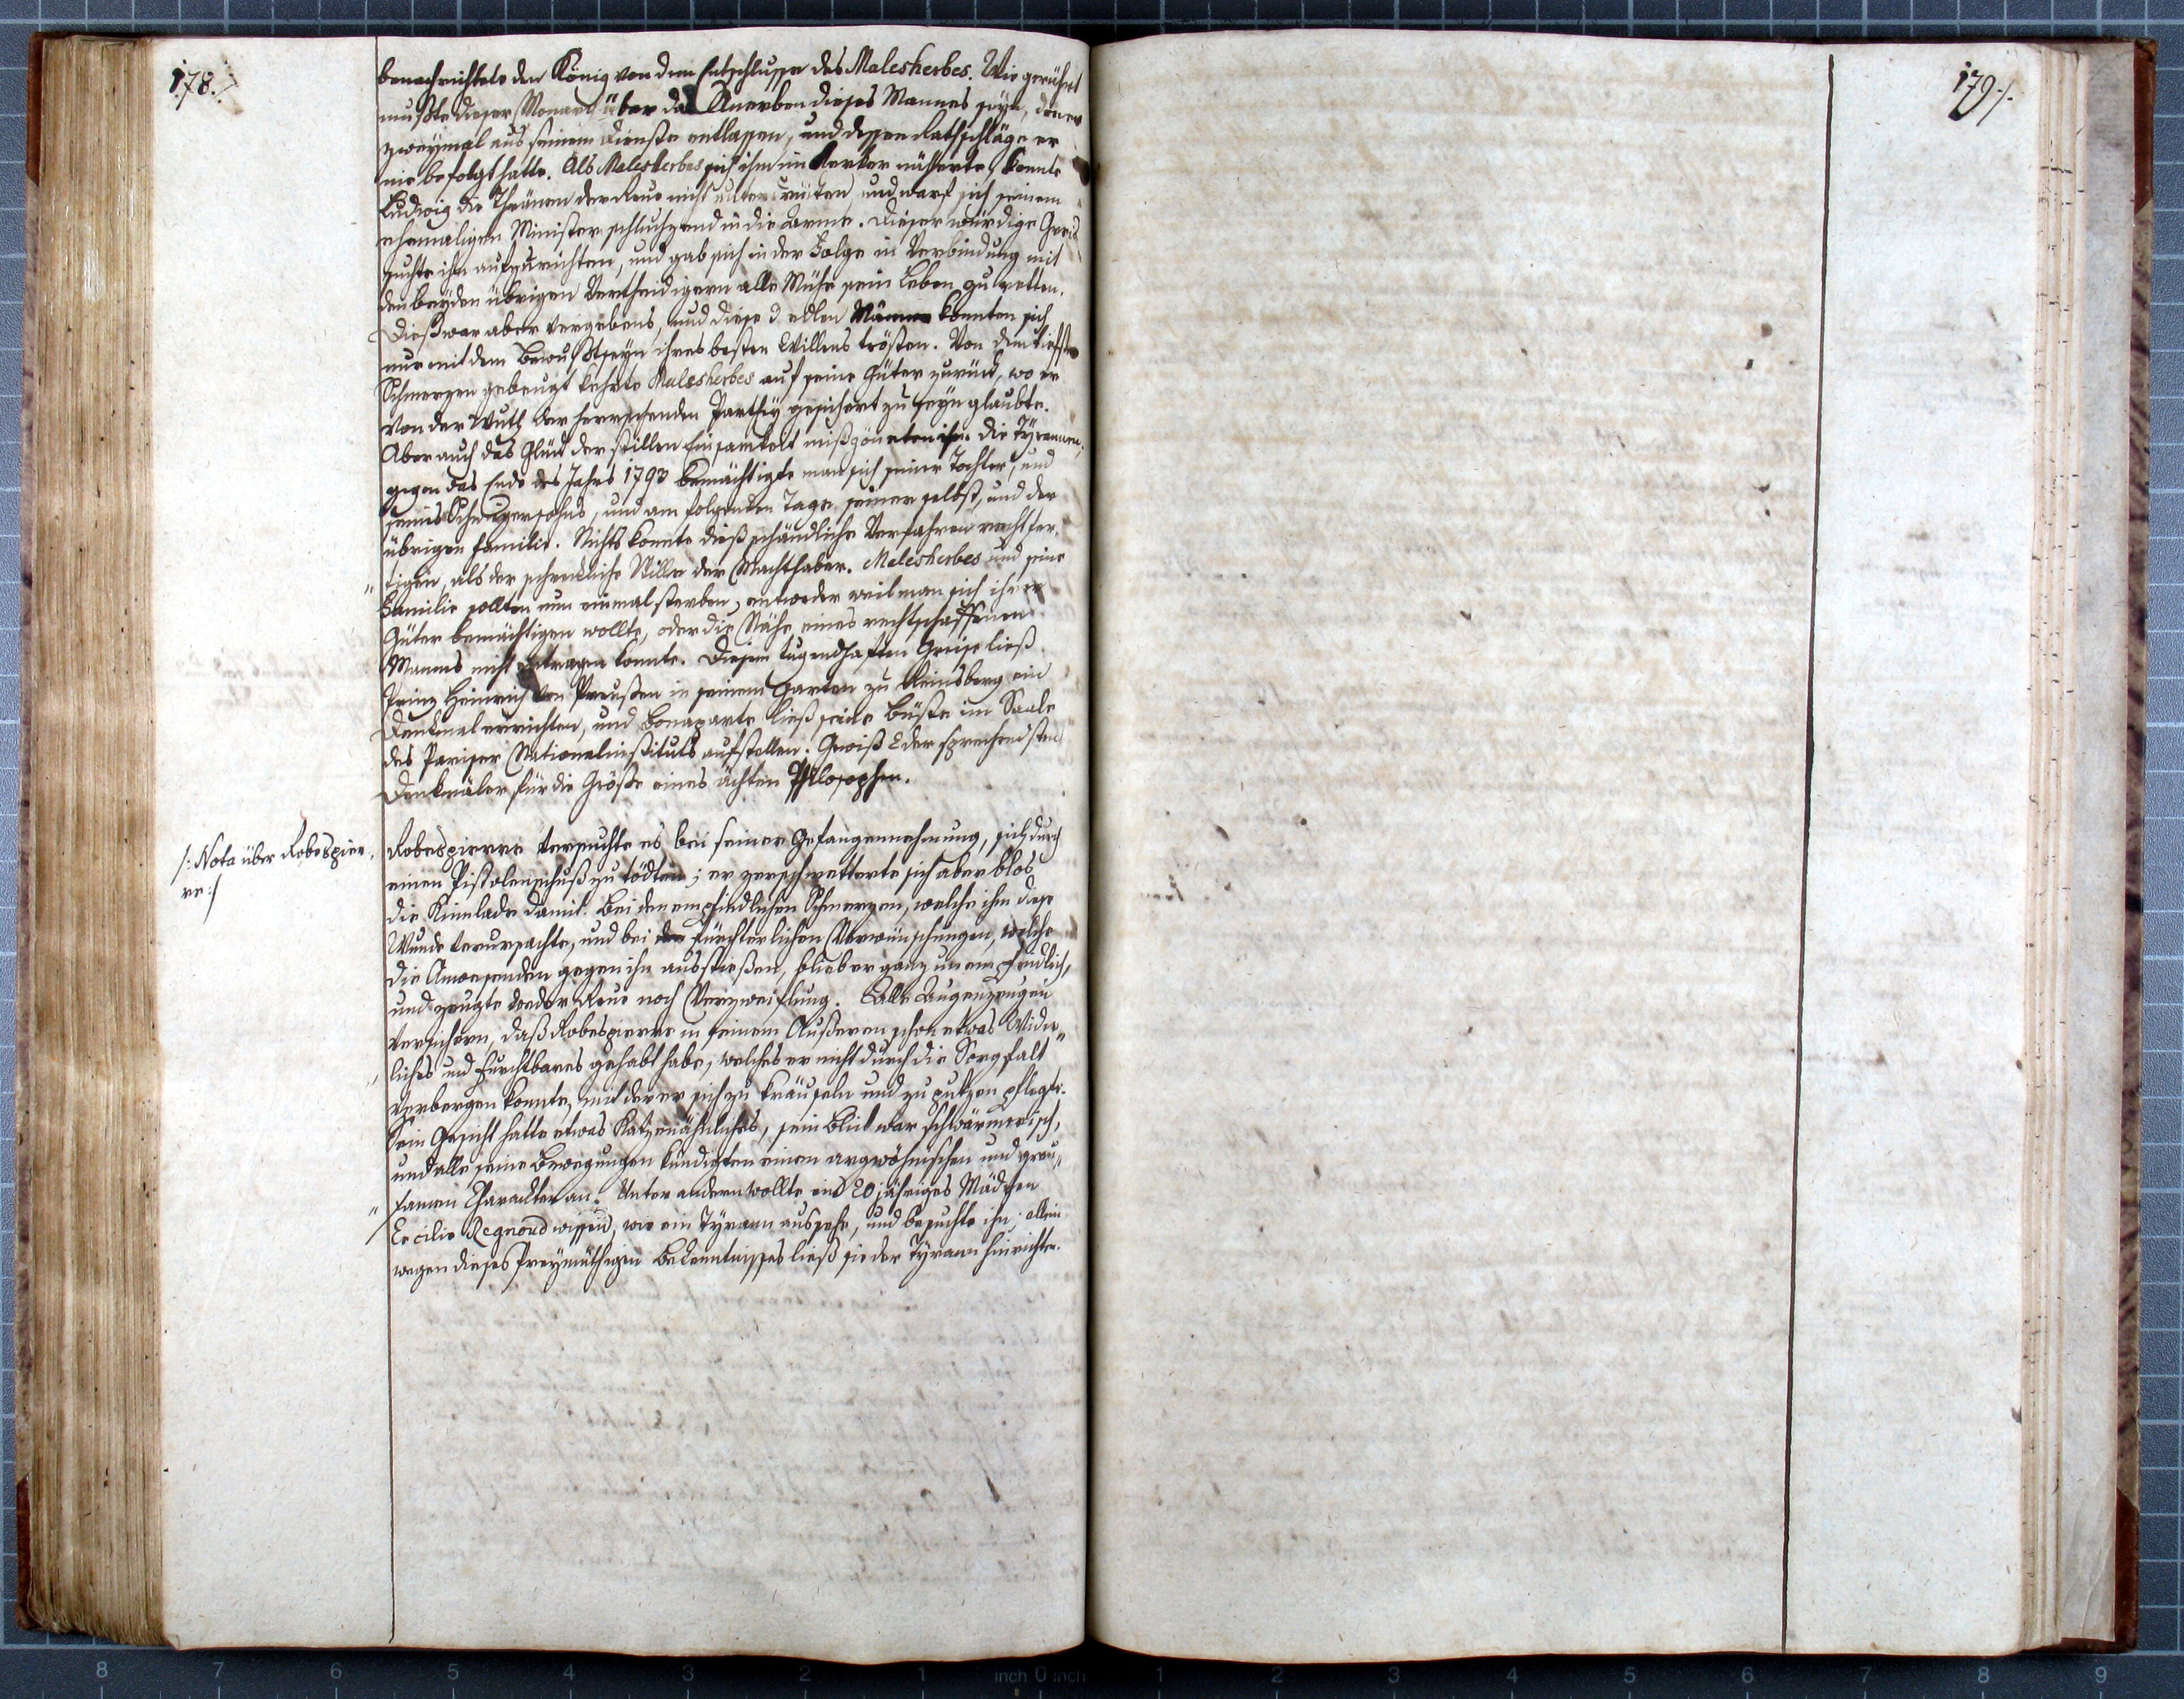 178.
benachrichtete den König von dem Entschlusse des Malesherbes. Wie gerührt
mußte dieser Monarch über das Anerben dieses Mannes seyn, den er
zweymal aus seinem Dienste entlassen, und dessen Rathschläge er
nie befolgt hatte. Als Malesherbes sich ihm im Kerker näherte, konnte
Ludwig die Thränen der Reue nicht und warf sich seinem
ehemaligen Minister schluchzend in die Arme. Dieser würdige Greis
suchte ihn aufzurichten, und gab sich in der Folge in Verbindung mit
den beyden übrigen Vertheidigern alle Mühe sein Leben zu retten.
Dieß war aber vergebens, und diese 3 edlen Männer konnten sich
nur mit dem Bewußtseyn ihres besten Willens trösten. Von dem tiefsten
Schmerzen gebeugt kehrte Malesherbes auf seine Güter zurück, wo er
von der Wuth der herrschenden Parthey gesichert zu seyn glaubte.
Aber auch das Glück der stillen Einsamkeit mißgönneten ihm die Tyrannen;
gegen das Ende des Jahrs 1793 bemächtigte man sich seiner Tochter, und
seines Schwigersohns, und am folgenden Tage seiner selbst, und der
übrigen Familie. Nichts konnte dieß schändliche Verfahren rechtfer„
„tigen, als der schreckliche Wille der Machthaber. Malesherbes und seine
Familie sollten nun einmal sterben, entweder weil man sich ihrer
Güter bemächtigen wollte, oder die Nähe eines rechtschaffenen
Mannes nicht ertragen konnte. Diesem tugendhaften Greise ließ
Prinz Heinrich von Preußen in seinem Garten zu Reinsberg ein
Denkmal errichten, und Bonaparte ließ seine Büste im Saale
des Pariser Nationalinstituts aufstellen. Gewiß 2 der sprechendsten
Denkmäler für die Größe eines ächten Philosophen.
/: Nota über Robespier„
re :/
Robespierre versuchte es bei seiner Gefangennehmung, sich durch
einen Pistolenschuß zu tödten; er zerschmetterte sich aber blos
die Kinnlade damit. Bei den empfindlichen Schmerzen, welche ihm diese
Wunde verursachte, und bei den fürchterlichen Verwünschungen, welche
die Anwesenden gegen ihn ausstießen, blieb er ganz unempfindlich,
und zeugte weder Reue noch Verzweiflung. Alle Augenzeugen
versichern, daß Robespierre in seinem Äußeren schon etwas Wider„
„liches und Furchtbares gehabt habe, welches er nicht durch die Sorgfalt
verbergen konnte, mit der er sich zu kräuseln und zu putzen pflegte.
Sein Gesicht hatte etwas Katzenähnliches, sein Blick war schwärmerisch,
und alle seine Bewegungen kündigten einen argwöhnischen und grau„
„samen Charackter an. Unter andern wollte ein 20 jähriges Mädchen
Cecilie Regnoud wissen, wie ein Tyrann aussehe, und besuchte ihn; allein
wegen dieses freymüthigen Bekenntnisses ließ sie der Tyrann hinrichten.
179./.